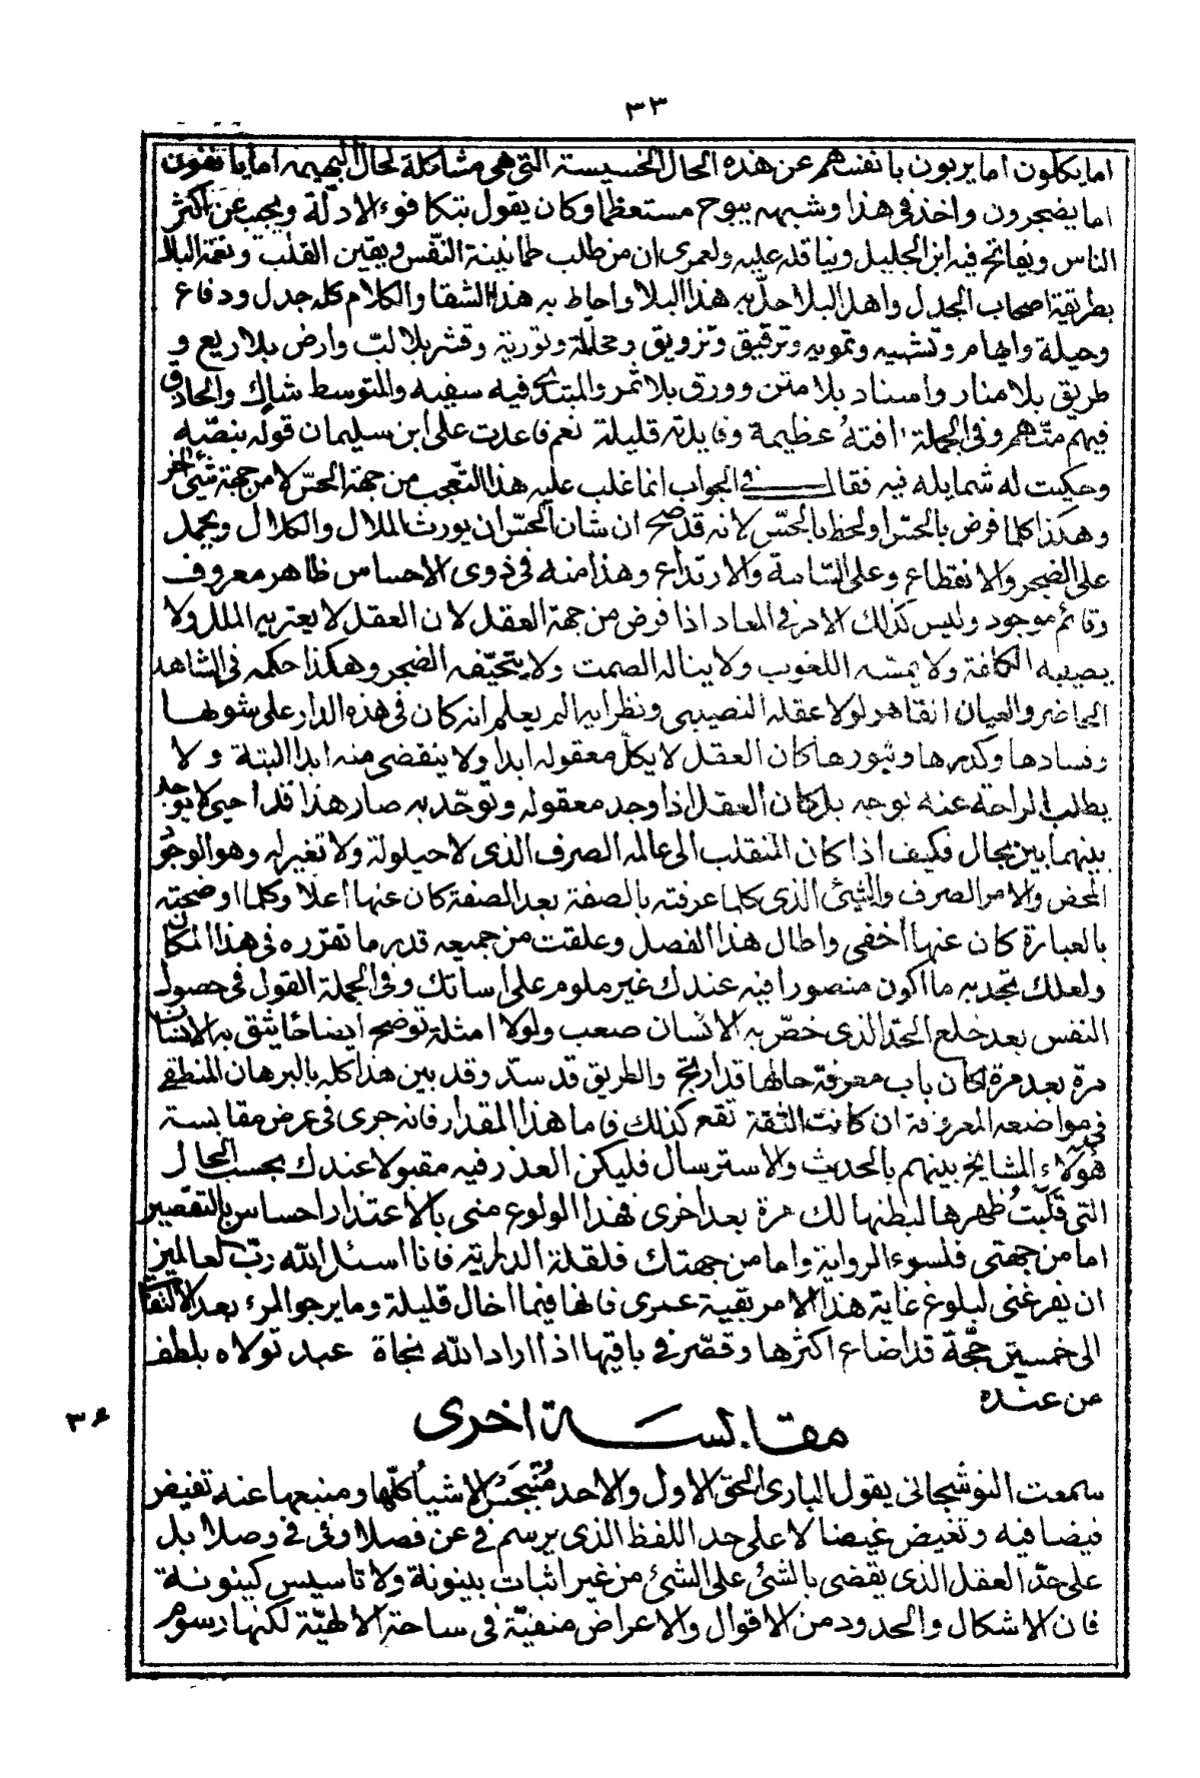 ٣٣
اما يكلون اما يربون بانفسهم عن هذه الحال الخسيسة التى هى مشاكلة لحال البهيمه اما يانفون
اما يضجرون واخذ فى هذا وشبهه يبوح مستعظما وكان يقول بتكافوء الادلّة ويجب عن اكثر
الناس ويفاتح فيه ابن الجليل ويناقله عليه ولعمرى ان من طلب طمانينة النّفس ويقين القلب ونعمة البال
بطريقة اصحاب الجدل واهل البلا حلّ به هذا البلا واحاط به هذا الشقا والكلام كله جدل ودفاع
وحيلة وايهام وتشبيه وتمويه وترقيق وتزويق ومخاتلة وتورية وقشر بلا لبّ وارض بلا ريع و
طريق بلا منار واسناد بلا متن وورق بلا ثمر والمبتدئ فيه سفيه والمتوسط شاك والحاذق
فيهم متّهم وفى الجملة افتهُ عظيمة وفايدته قليلة نعم فاعدت على ابن سليمان قوله بنصّه
وحكيت له شمايله فيه فقال فى الجواب انما غلب عليه هذا التّعجب من جهة الحسّ لا من جهة شئ اخر
وهكذا كلما فرض بالحسّ او لحظ بالحسّ لانه قد صح ان شان الحسّ ان يورث الملال والكلال ويحمل
على الضجر والانقطاع وعلى السّامة والارتداع وهذا منه فى ذوى الاحساس ظاهر معروف
وقائم موجود وليس كذلك الامر فى المعاد اذا فرض من جهة العقل لان العقل لا يعتريه الملل ولا
يصيبه الكلفة ولا يمسّه اللغوب ولا يناله الصمت ولا يتحيّفه الضجر وهكذا حكمه فى الشاهد
الحاضر والعيان القاهر لولا عقله النصيبى ونظرايه الم يعلم انه كان فى هذه الدار على شوبها
وفسادها وكدرها وثبورها كان العقل لا يكلّ معقوله ابدا ولا ينقضى منه ابدا البتة ولا
يطلب الراحة عنه بوجه بل كان العقل اذا وجد معقوله وتوحّد به صار هذا قذا حتى لا يوجد
بينهما بين بحال فكيف اذا كان المنقلب الى عالمه الصرف الذى لا حيلولة ولا تغير له وهو الوجود
المحض والامر الصرف والشئ الذى كلما عرفته بالصفة بعد الصفة كان عنها اعلا وكلما اوضحته
بالعبارة كان عنها اخفى واطال هذا الفصل وعلقت من جميعه قدر ما تقرره فى هذا المكان
ولعلك تجد به ما اكون منصورا فيه عندك غير ملوم على اساتك وفى الجملة القول فى حصول
النفس بعد خلع الحدّ الذى خصّ به الانسان صعب ولولا امثلة توضح ايضاحا يثق به الانسان
مرة بعد مرة لكان باب معرفة حالها قد ارتج والطريق قد سدّ وقد بين هذا كله بالبرهان المنطقى
فى مواضعه المعروفة ان كانت الثقة تقع كذلك فاما هذا المقدار فانه جرى فى عرض مقابسة
هؤلاء المشايخ بينهم بالحديث والاسترسال فليكن العذر فيه مقبولا عندك بحسب الحال
التى قلّبتُ ظهرها لبطنها لك مرة بعد اخرى فهذا الولوع منى بالاعتذار احساس بالتقصير
اما من جهتى فلسوء الرواية واما من جهتك فلقلة الدراية فانا اسئل الله ربّ العالمين
ان يفرغنى لبلوغ غاية هذا الامر بقية عمرى فانها فيما اخال قليلة وما يرجو المرء بعد الالتفات
الى خمسين حجّة قد اضاع اكثرها وقصّر فى باقيها اذا اراد الله نجاة عبد تولاه بلطف
من عنده
٣۴
مقابسة اخرى
سمعت النوشجانى يقول البارى الحق الاول والاحد مُنبَجَسُ الاشياء كلّها ومنبعها عنه تفيض
فيضا فيه وتغيض غيضا لا على حد اللفظ الذى يرسم فى عن فصلا وفى فى وصلا بل
على حدّ العقل الذى يقضى بالشئ على الشئ من غير اثبات بينونة ولا تاسيس كينونة
فان الاشكال والحدود من الاقوال والاعراض منفيّة فى ساحة الالهيّة لكنها رسوم